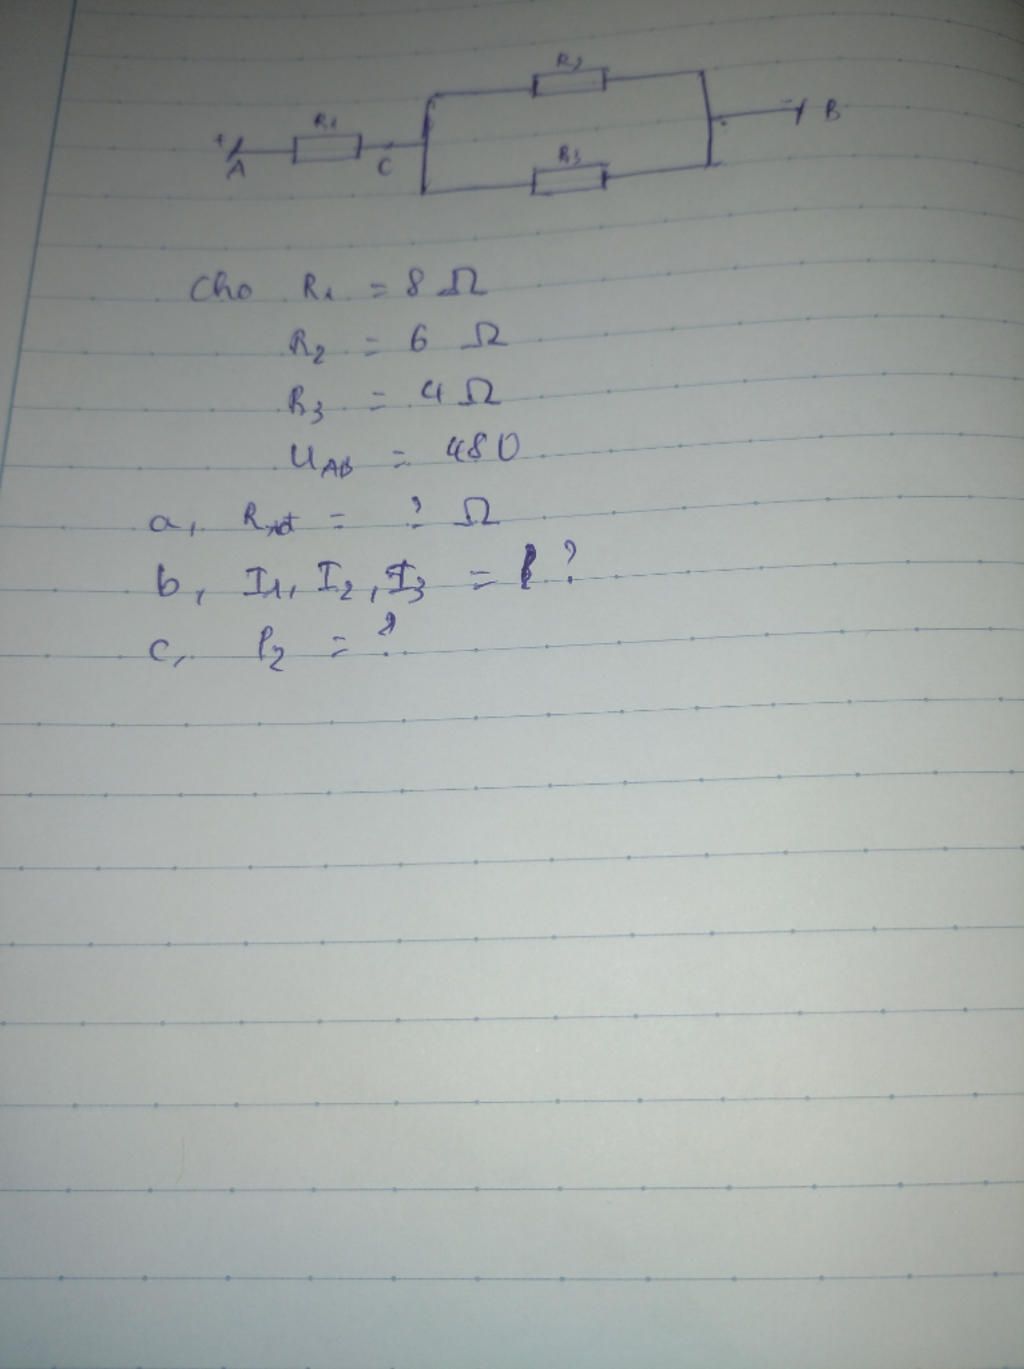 R2
R1
+ A C - B
R3
Cho R1 = 8 Ω
R2 = 6 Ω
R3 = 4 Ω
UAB = 48 V
a, Rtđ = ? Ω
b, I1, I2, I3 = ?
c, P2 = ?